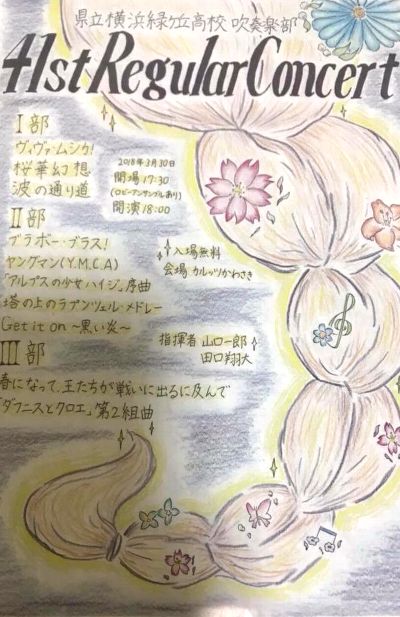 県立横浜緑ケ丘高校 吹奏楽部
41st Regular Concert
Ⅰ部
ヴィヴァ・ムシカ!
桜華幻想
波の通り道
2018年3月30日
開場 17:30
(ロビーアンサンブルあり)
開演 18:00
Ⅱ部
ブラボー・ブラス!
ヤングマン(Y.M.C.A)
「アルプスの少女ハイジ」序曲
塔の上のラプンツェル・メドレー
Get it on 〜黒い炎〜
入場無料
会場 カルッツかわさき
指揮者 山口一郎
田口翔大
Ⅲ部
春になって、王たちが戦いに出るに及んで
「ダフニスとクロエ」第2組曲